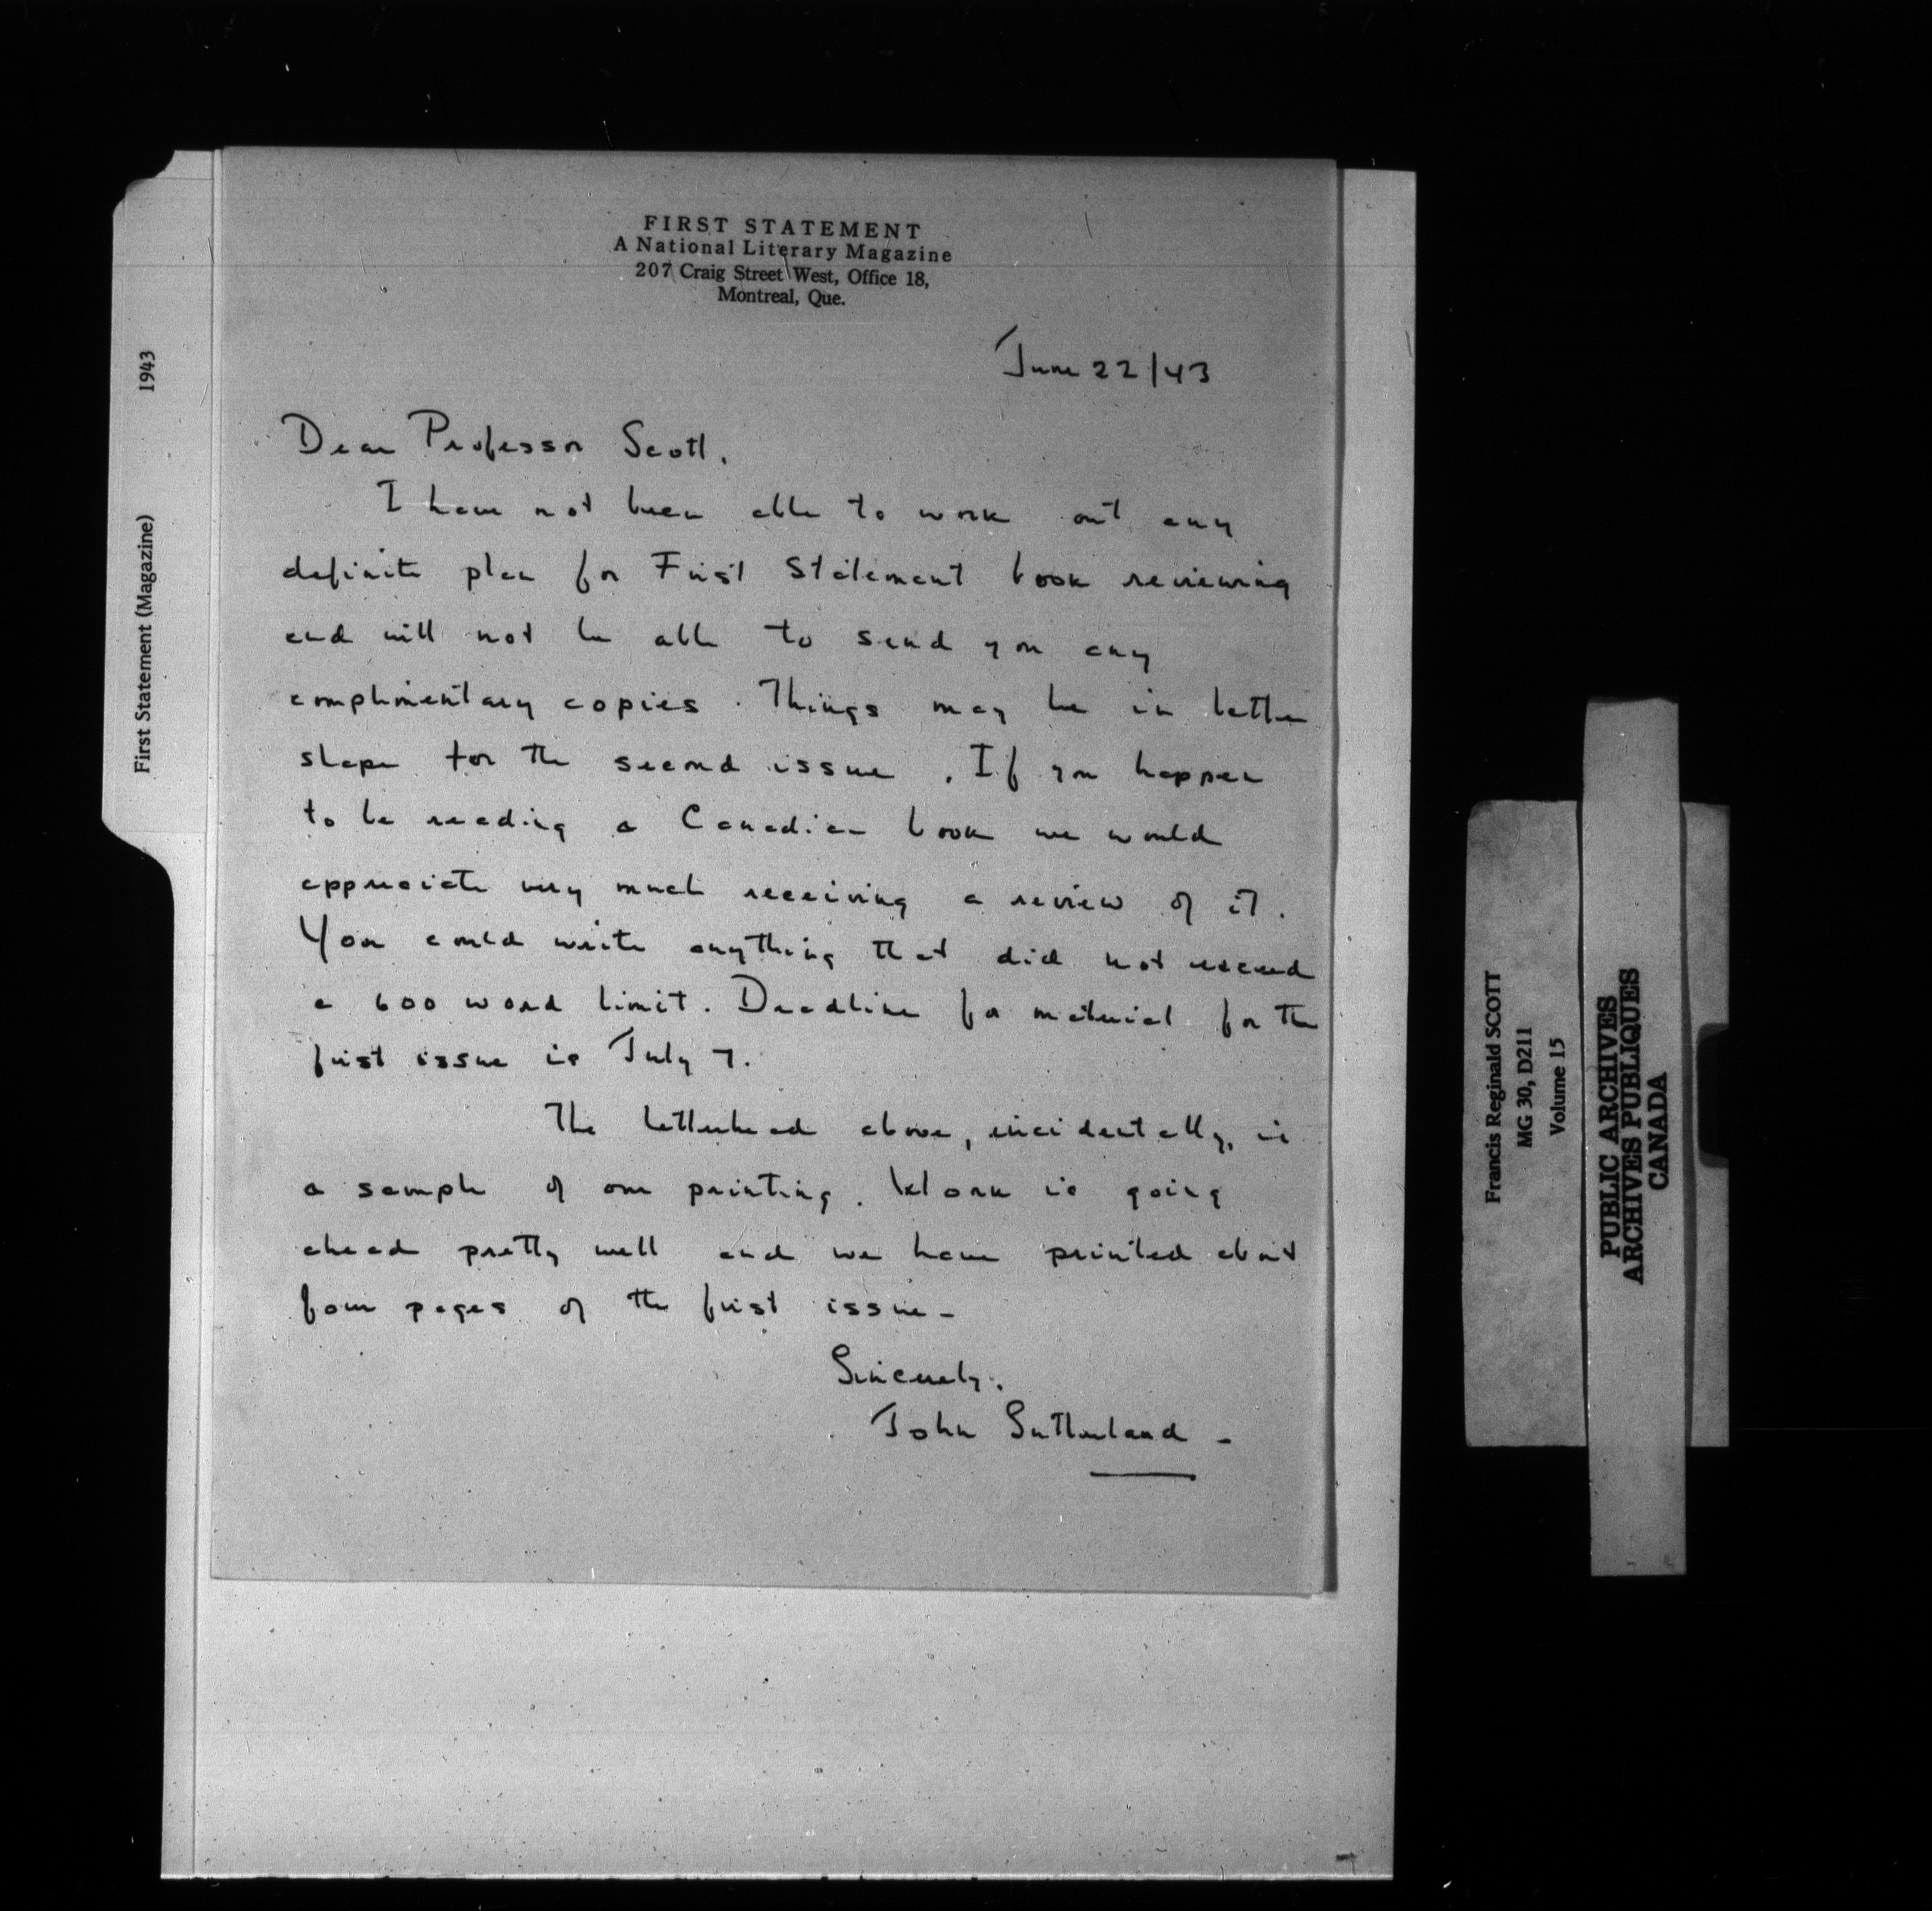 FIRST STATEMENT
A National Literary Magazine
207 Craig Street West, Office 18,
Montreal, Que.
June 22/43
Dear Professor Scott.
I have not been able to work out any
definite plan for First Statement book reviewing
and will not be able to send you any
complimentary copies. Things may be in better
shape for the second issue. If you happen
to be reading a Canadian book we would
appreciate very much receiving a review of it.
You could write anything that did not exceed
a 600 word limit. Deadline for material for the
first issue is July 7.
The letterhead above, incidentally, is
a sample of our printing. Work is going
ahead pretty well and we have printed about
four pages of the first issue -
Sincerely.
John Sutherland -
First Statement (Magazine) 1943
Francis Reginald SCOTT
MG 30, D211
Volume 15
PUBLIC ARCHIVES
ARCHIVES PUBLIQUES
CANADA